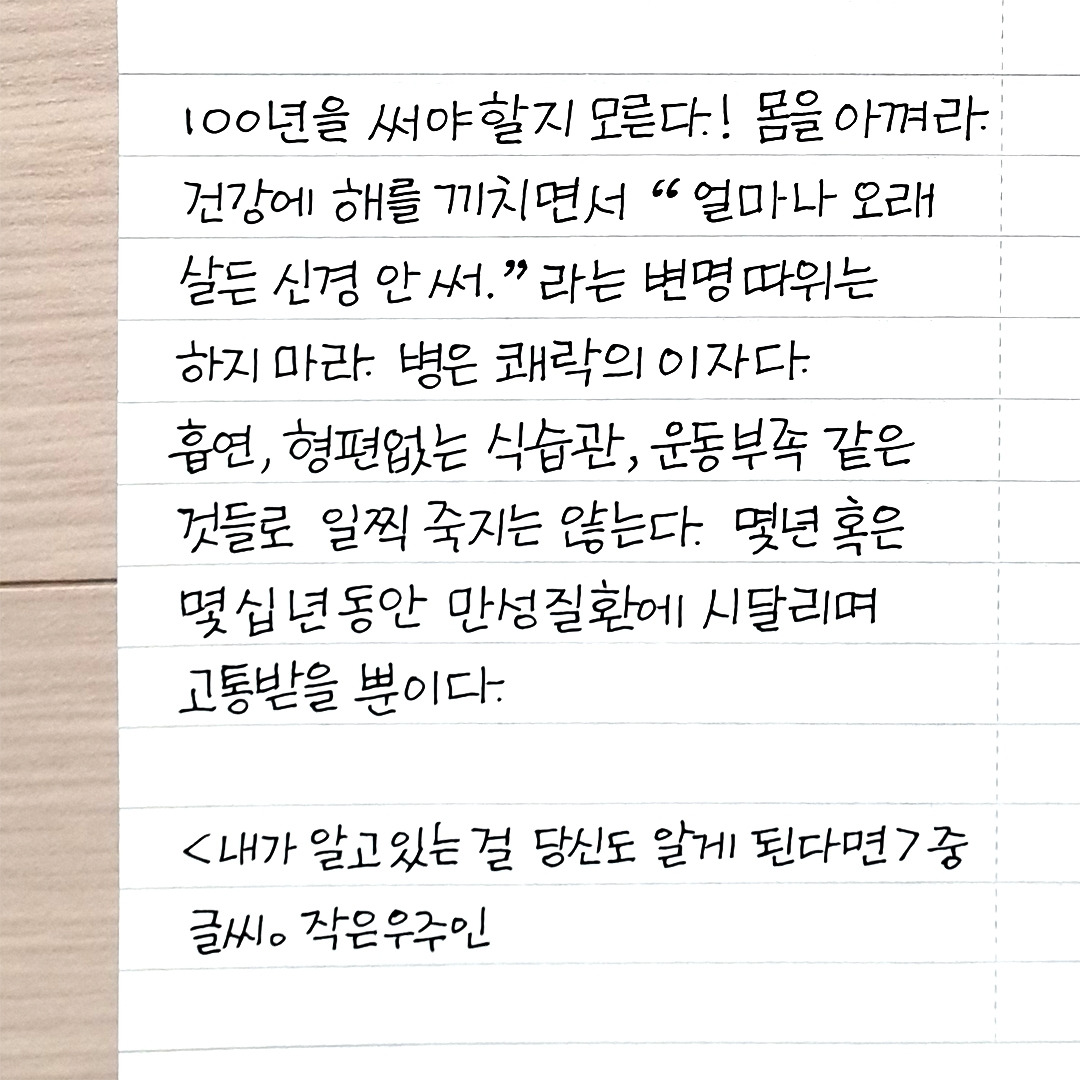 100년을 써야할지 모른다.! 몸을 아껴라.
건강에 해를 끼치면서 “얼마나 오래
살든 신경 안 써.”라는 변명따위는
하지 마라. 병은 쾌락의 이자다.
흡연, 형편없는 식습관, 운동부족 같은
것들로 일찍 죽지는 않는다. 몇년 혹은
몇십년동안 만성질환에 시달리며
고통받을 뿐이다.
<내가 알고있는 걸 당신도 알게 된다면>중
글씨。작은우주인